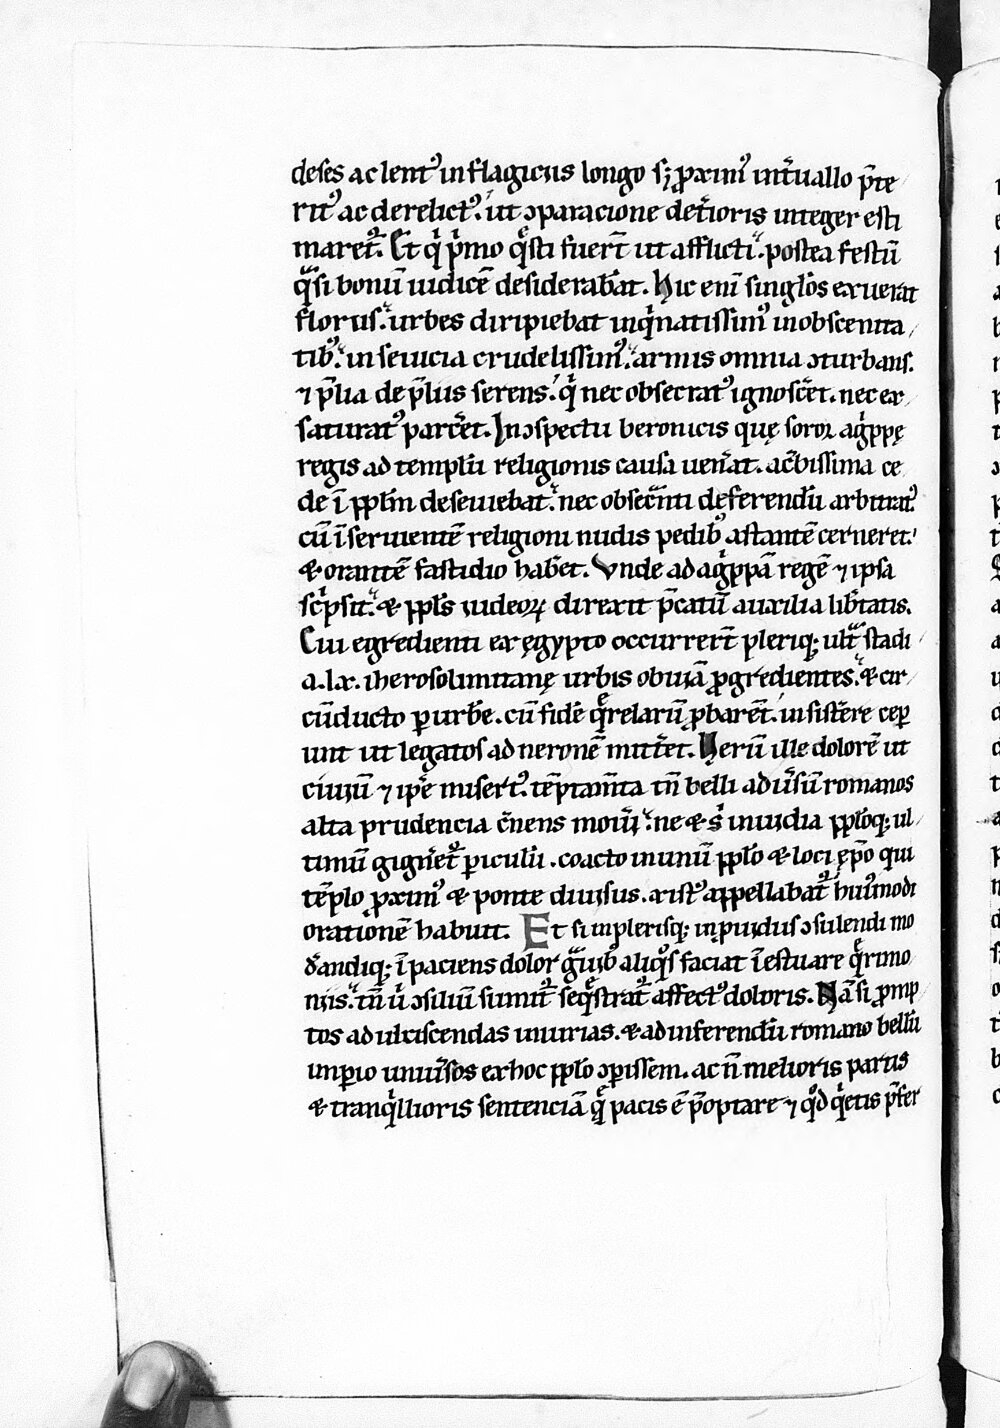 deses ac lentꝰ in flagiciis longo sꝫ ꝓximꝰ int̃uallo p̃te
ritꝰ ac derelictꝰ. ut ɔparacione det̃ioris integer esti
maret᷑. Et qͥ pͥmo qͣsti fuer̃t ut afflicti. postea festũ
qͣsi bonũ iudicẽ desiderabãt. Hic eniͫ singlo̾s exuerat
florus. urbes diripiebat inqͥnatissimꝰ in obscenita
tibꝰ. in seuicia crudelissimꝰ. armis omnia ɔturbans.
⁊ p̃lia de p̃liis serens. qͥ nec obsecratꝰ ignosc̃et. nec ex
saturatꝰ parc̃et. In ɔspectu beronicis quę soror agͥppę
regis ad templũ religionis causa uen̾at. ac̾bissima ce
de ĩ pplm̃ deseuiebat. nec obsecͣnti deferendũ arbitratꝰ
cũ ĩseruientẽ religioni nudis pedibꝰ astantẽ cerneret.
& orantẽ fastidio hab̃et. Vnde ad agͥppã regẽ ⁊ ipsa
scͥpsit. & ppl̃s iudeoꝝ direxit p̃catũ auxilia lib̾tatis.
Cui egredienti ex ęgypto occurrer̃t pleriqꝫ ultͣ stadi
a .lx. iherosolimitanę urbis obuiã ꝓgredientes. & cir
cũducto ꝑ urbẽ. cũ fidẽ qͤrelarũ ꝓbarẽt. insist̾e cep̾
unt ut legatos ad neronẽ mitt̾et. Verũ ille dolorẽ ut
ciuiũ ⁊ ip̃e misertꝰ. tẽptam̃ta tñ belli adu̾sũ romanos
alta prudencia c̾nens moũi. ne & sͥ inuidia pplo̾qꝫ ul
timũ gigner̃et᷑ ꝑiculũ. coacto in unũ pplo̾ & loci ęp̃o qui
tẽplo ꝓximꝰ & ponte diuisus. xistꝰ appellabat᷑ huiꝰmodi
orationẽ habuit. Et si in plerisqꝫ inpuidus ɔsulendi mo
d̾andiqꝫ ĩpaciens dolor gͣuibꝰ aliqͦs faciat ĩestuare qͤrimo
niis. tñ u̾ ɔsiliũ sumit᷑ seqͤstrat᷑ affectꝰ doloris. Nã si ꝓmp
tos ad ulciscendas iniurias. & ad inferendũ romano bellũ
imꝑio uniu̾sos ex hoc pplo̾ ɔꝑissem. ac ñ melioris partis
& tranqͥllioris sentenciã q̨ͤ pacis ẽ p̃optare ⁊ qͦd qͥetis p̃fer